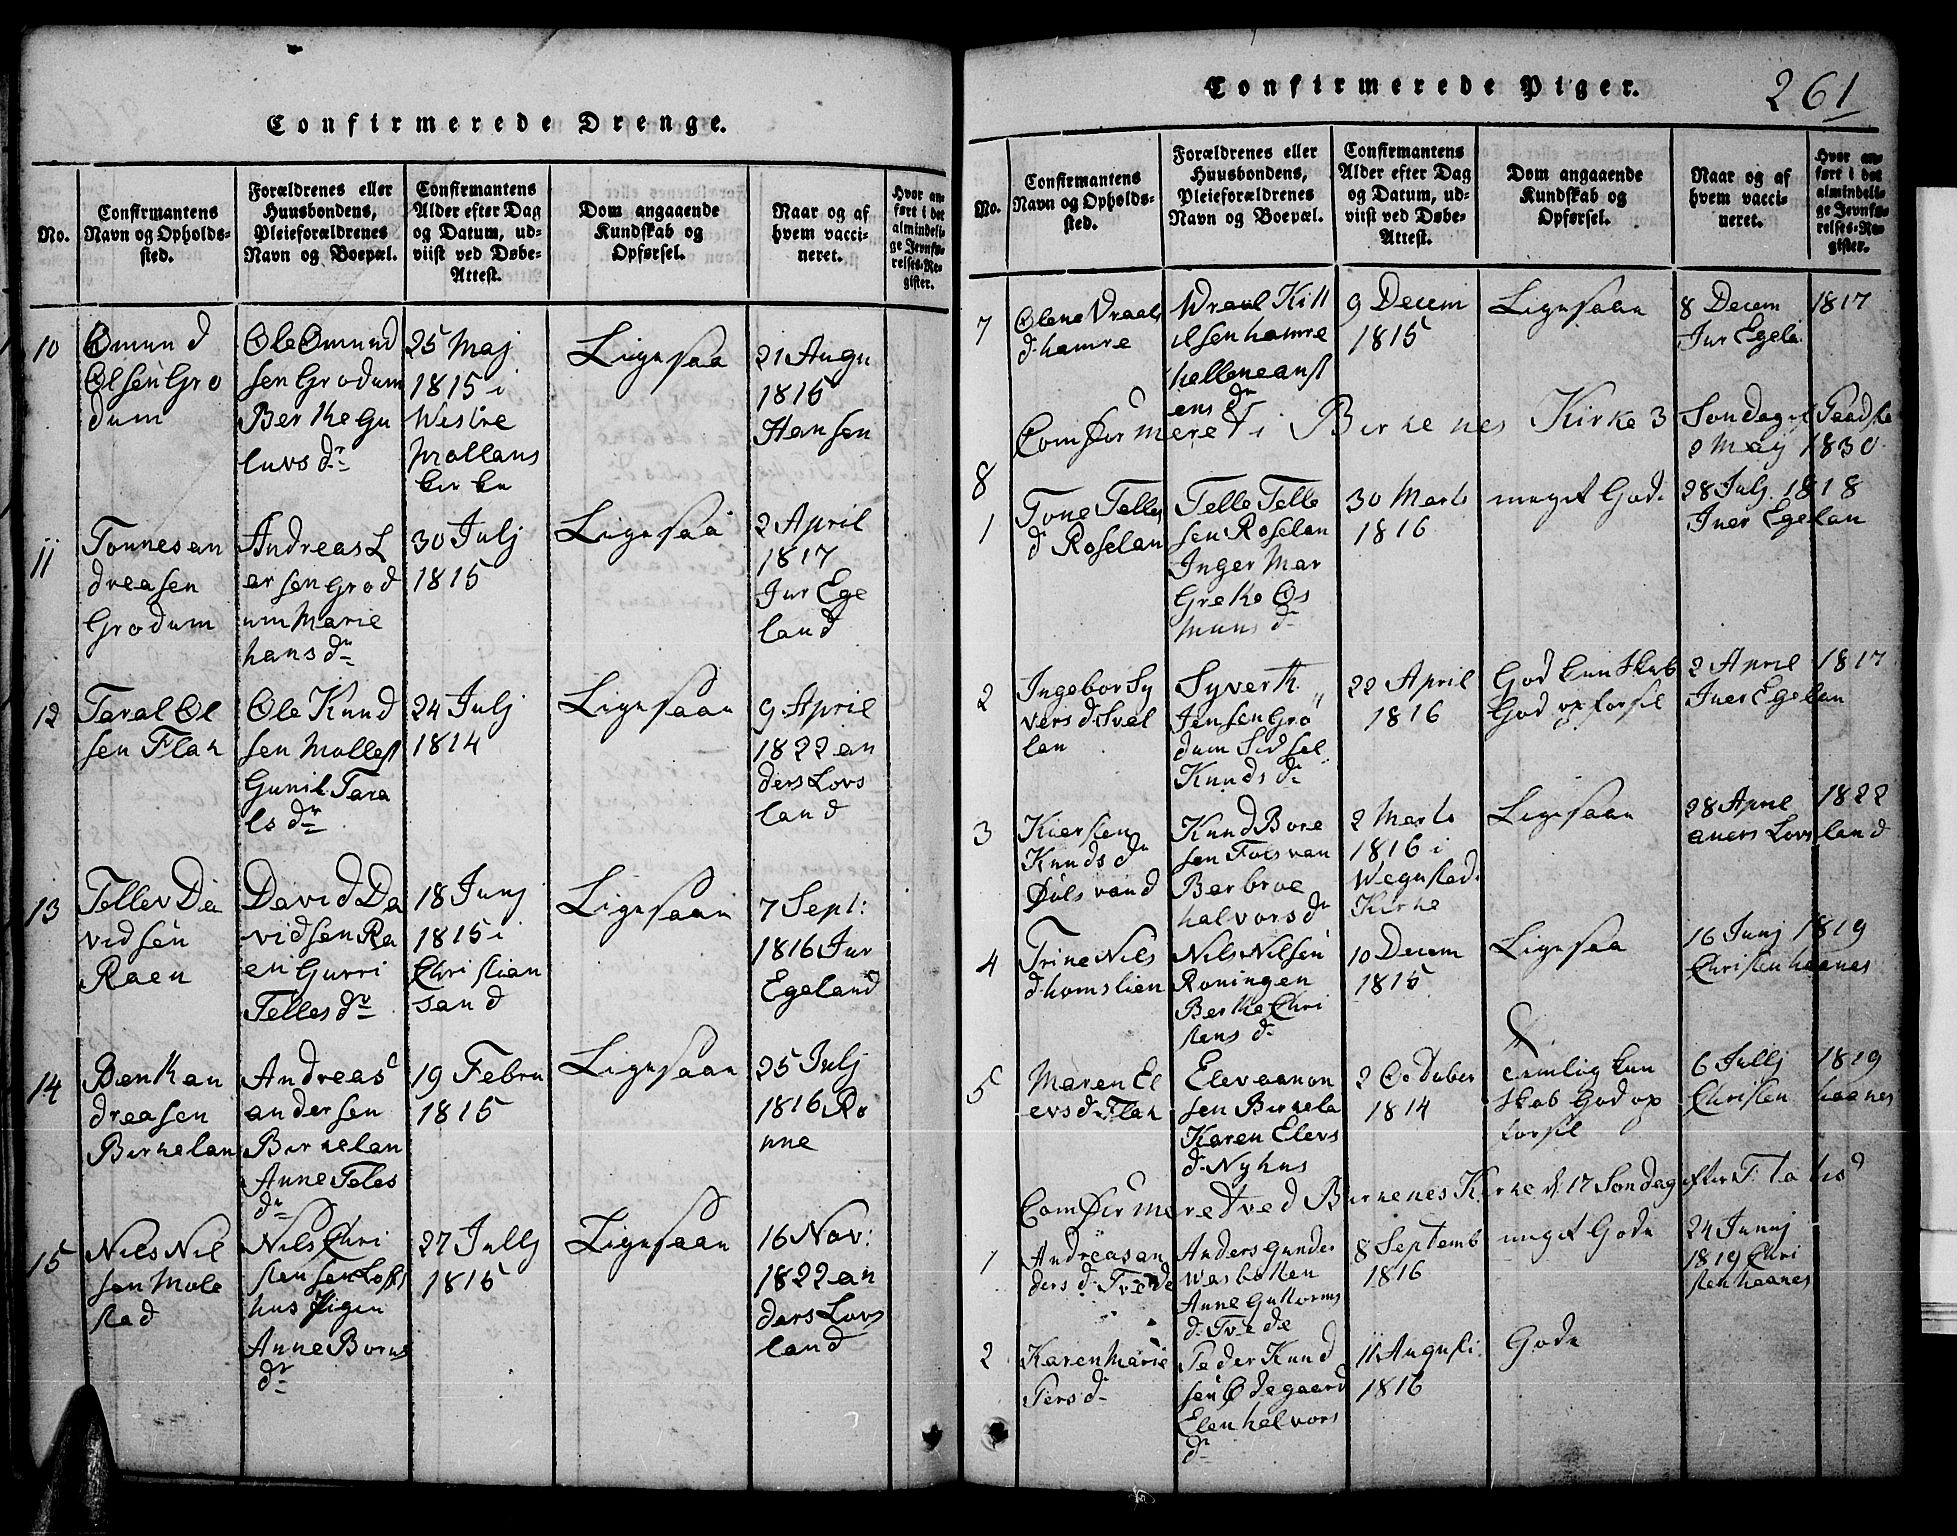 Confirmerede Drenge.
No.
Confirmantens
Navn og Opholds-
sted.
Forældrenes eller
Huusbondens,
Pleieforældrenes
Navn og Boepæl.
Confirmantens
Alder efter Dag
og Datum, ud-
viist ved Døbe-
Attest.
Dom angaaende
Kundskab og
Opførsel.
Naar og af
hvem vacci-
neret.
Hvor an-
ført i det
almindeli-
ge Jevnfø-
relses-Re-
gister.
10
Omund
Olsen Gro
dum
Ole Omund
sen Grodum
Berthe Gu
luvs dr
25 Maj
1815 i
Westre
Mollans
kirke
Ligesaa
21 Augu
1816
Hansen
11
Tonnes an
dreasen
Grodum
Andreas L
arsen Grod
um Marie
hans dr
30 Julj
1815
Ligesaa
2 April
1817
Jur Ege
land
12
Taral Ol
sen Flah
Ole Knud
sen Mollest
Gunil Tara
ls dr
24 Julj
1814
Ligesaan
9 April
1822 an
ders Lovs
land
13
Tellev Da
vidsen
Raen
David Da
vidsen Ra
en Gurri
Telles dr
18 Junj
1815 i
Christian
sand
Ligesaan
7 Sept:
1816 Jur
Egeland
14
Bent an
dreasen
Birkelan
Andreas
andersen
Birkelan
Anne Teles
dr
19 Febru
1815
Ligesaan
25 Julj
1816 Ro
nne
15
Nils Nil
sen Mole
stad
Nils Chri
stensen Loft
hus Pigen
Anne Borns
dr
27 Jullj
1815
Ligesaan
16 Nov:
1822 an
ders Lovs
land
Confirmerede Piger.
261
No.
Confirmantens
Navn og Opholds-
sted.
Forældrenes eller
Huusbondens,
Pleieforældrenes
Navn og Boepæl.
Confirmantens
Alder efter Dag
og Datum, ud-
viist ved Døbe-
Attest.
Dom angaaende
Kundskab og
Opførsel.
Naar og af
hvem vacci-
neret.
Hvor an-
ført i det
almindeli-
ge Jevnfø-
relses-Re-
gister.
7
Olene Vraals
d hamre
Wraal Kitt
ilsen hamre
hellene anst
ens dr
9 Decem
1815
Ligesaan
8 Decem 1817
Jur Egela
Comfirmeret i Birkenes Kirke 3 Sondag ef Paaske
9 Maij 1830
8
1
Tone Telles
d Roselan
Telle Telle
sen Roselan
Inger Mar
Grethe Os
muns d
30 Marts
1816
meget God
28 Julj 1818
Iver Egelan
2
Ingebor Sy
vers d Svel
lan
Syvert
Jensen Gro
dum Sidsel
Knuds d
22 April
1816
God kunskab
God opforsel
2 April 1817
Iver Egelan
3
Kiersten
Knuds d
Dolsvand
Knud Bore
sen Fotsvan
Berbroe
halvors d
2 Marts
1816 i
Wegusted
Kirke
Ligesaan
28 April 1822
aners Lovsland
4
Trine Nils
d homslien
Nils Nilsen
Roningen
Berthe Chri
stens d
10 Decem
1815
Ligesaa
16 Junj 1819
Christen haanes
5
Maren El
evs d Flah
Elev aanon
sen Birkela
Karen Elevs
d Nyhus
2 October
1814
Temlig kun
skab God op
forsel
6 Jullj 1819
Christen haanes
Comfirmeret ved Birkenes Kirke d. 17 Sondag efter
1
Andreas an
ders d Tvede
Anders Gunder
Wasbotten
Anne Guttorms
d Tvede
8 Septemb
1816
meget Gode
24 Junij
1819 Chri
sten haanes
2
Karen Marie
Pers d
Peder Knud
sen Ødegaard
Elen halvors
dr
11 August
1816
Gode